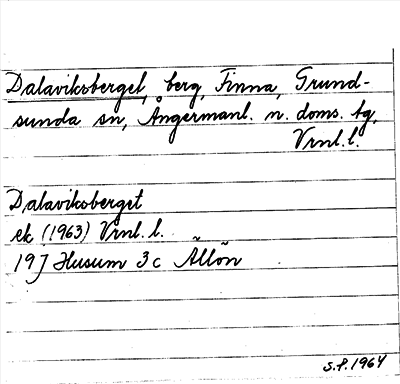 Dalaviksberget, berg, Finna, Grund-
sunda sn, Ångermanl. n. doms. tg,
Vrnl.l.
Dalaviksberget
ek (1963) Vrnl. l.
19J Husum 3c Ällön
S.P. 1964